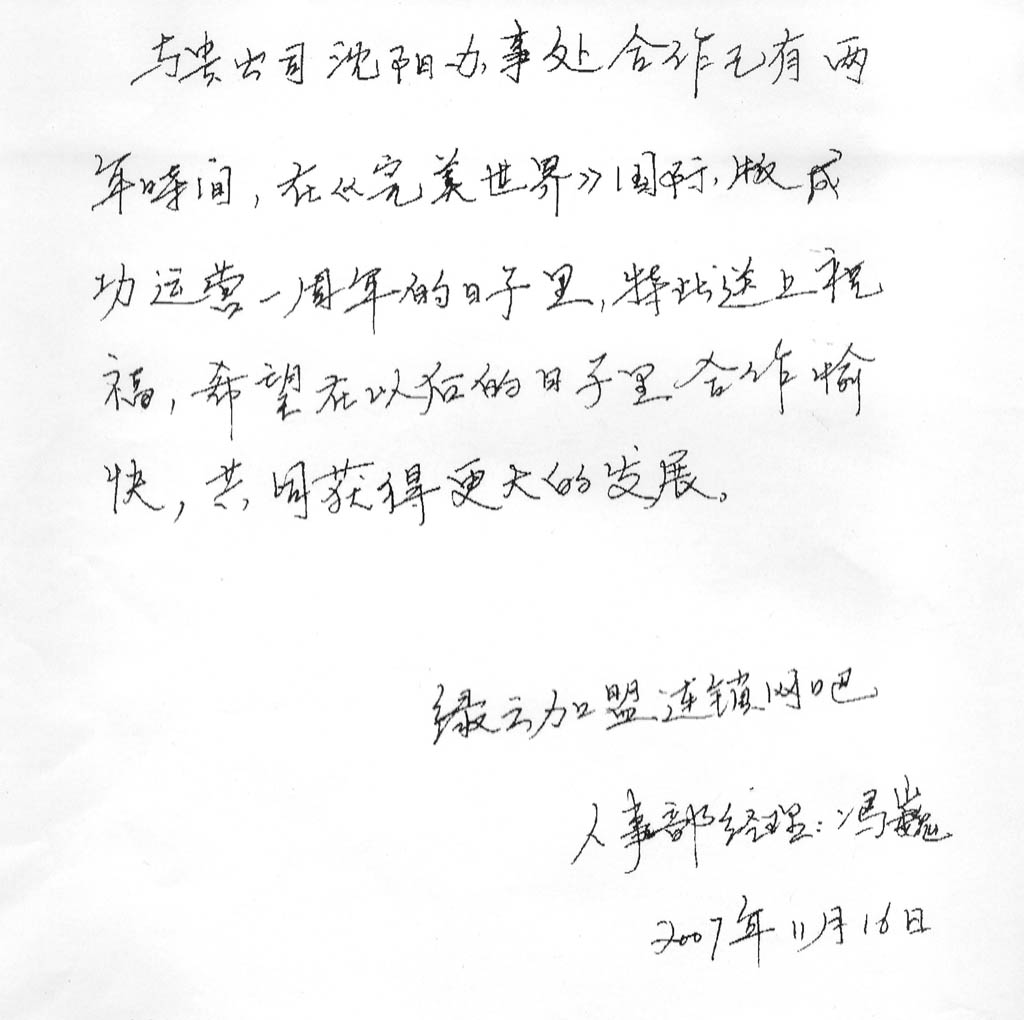 与贵公司沈阳办事处合作已有两
年时间,在《完美世界》国际版成
功运营一周年的日子里,特此送上祝
福,希望在以后的日子里合作愉
快,共同获得更大的发展。
缘云加盟连锁网吧
人事部经理:冯巍
2007年11月16日